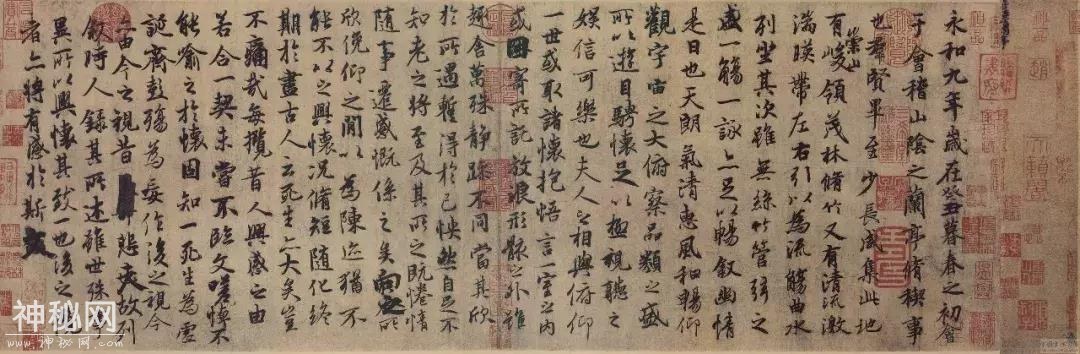 永和九年歲在癸丑暮春之初會
于會稽山陰之蘭亭脩稧事
也群賢畢至少長咸集此地
有崇山峻領茂林脩竹又有清流激
湍暎帶左右引以為流觴曲水
列坐其次雖無絲竹管弦之
盛一觴一詠亦足以暢敘幽情
是日也天朗氣清惠風和暢仰
觀宇宙之大俯察品類之盛
所以遊目騁懷足以極視聽之
娛信可樂也夫人之相與俯仰
一世或取諸懷抱悟言一室之內
或因寄所託放浪形骸之外雖
趣舍萬殊靜躁不同當其欣
於所遇暫得於己怏然自足不
知老之將至及其所之既惓情
隨事遷感慨係之矣向之所
欣俛仰之閒以為陳迹猶不
能不以之興懷況脩短隨化終
期於盡古人云死生亦大矣豈
不痛哉每攬昔人興感之由
若合一契未嘗不臨文嗟悼不
能喻之於懷固知一死生為虛
誕齊彭殤為妄作後之視今
亦由今之視昔悲夫故列
敘時人錄其所述雖世殊
異所以興懷其致一也後之
者亦將有感於斯文
神秘网